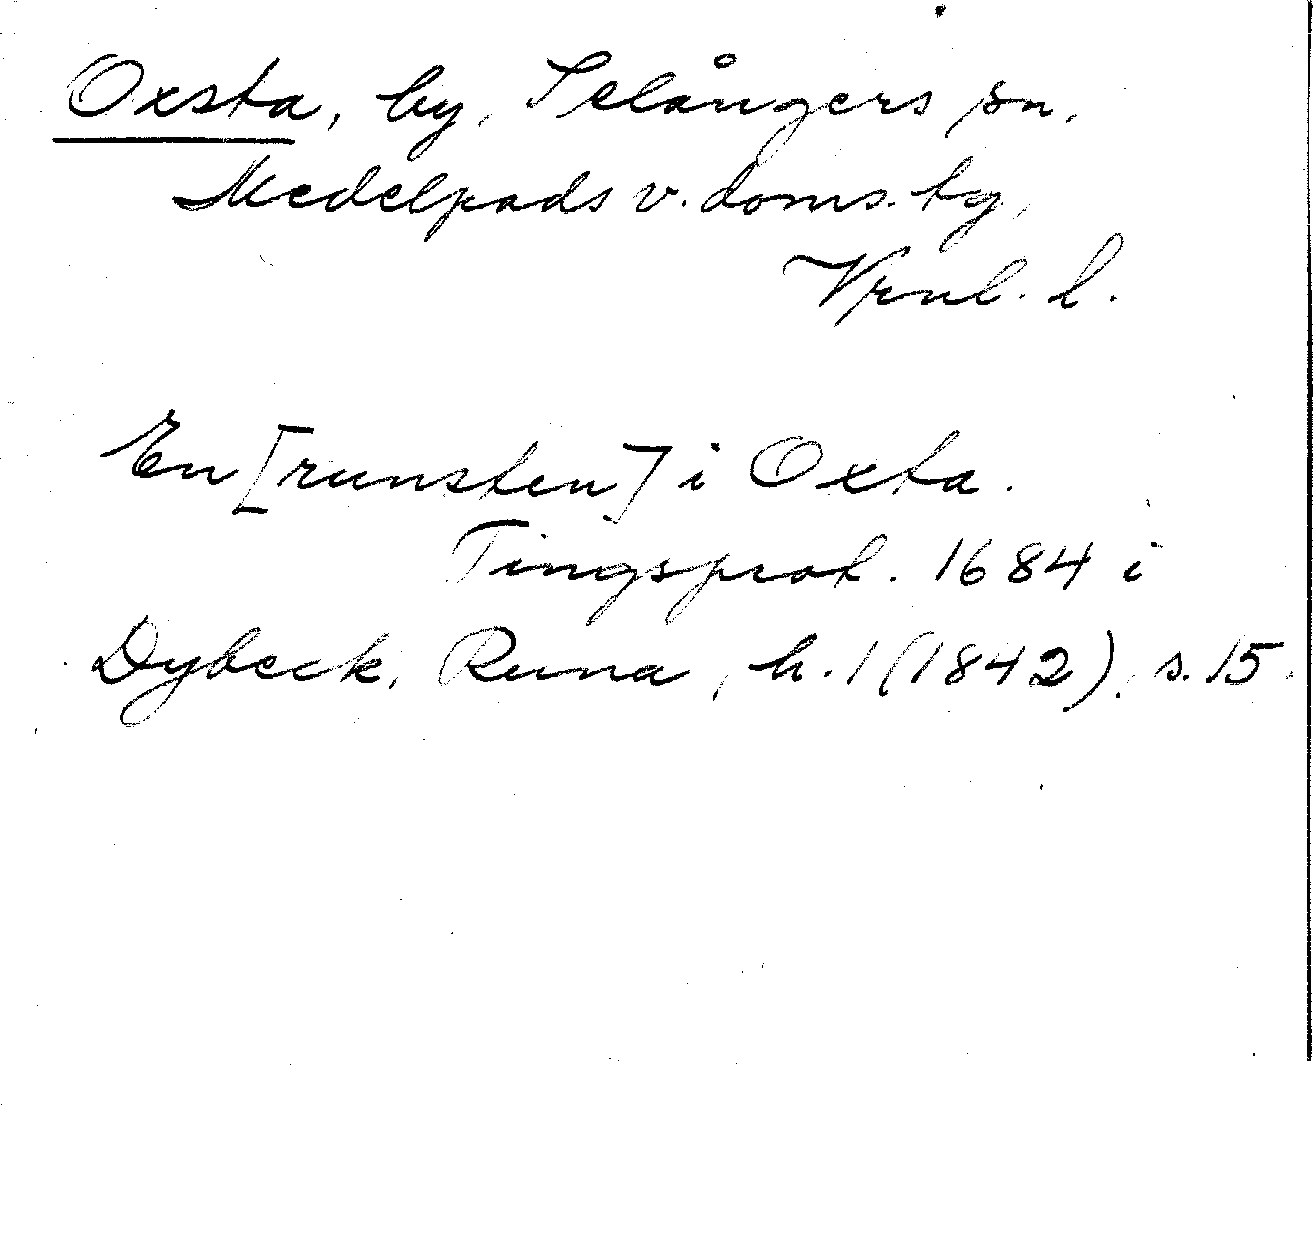 Oxsta, by, Selångers sn,
Medelpads v. doms. tg,
Vrnl. l.
En [runsten] i Oxta.
Tingsprot. 1684 i
Dybeck, Runa, h. 1 (1842), s. 15.